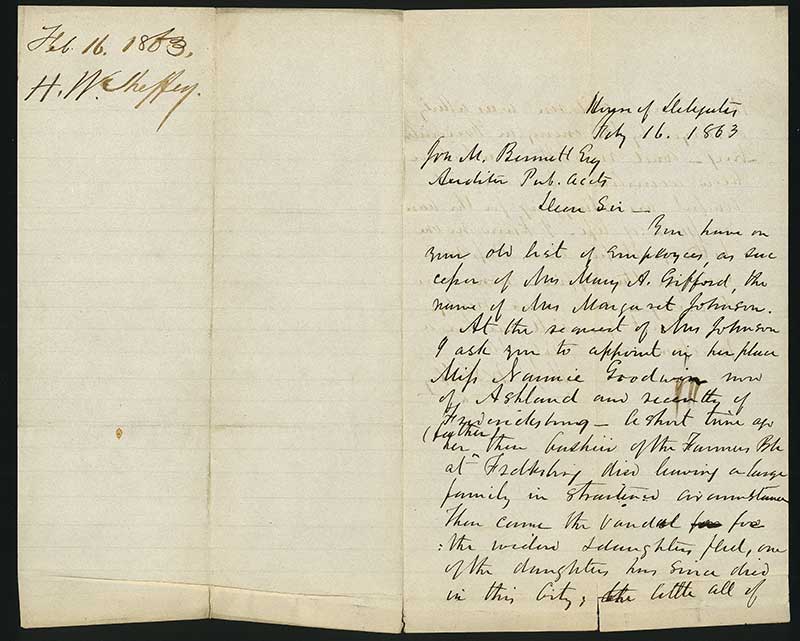 Feb. 16. 1863.
H. W. Sheffey.
House of Delegates
Feby 16. 1863
Jon M. Bennett Esq
Auditor Pub. Accts
Dear Sir —
You have on
your old list of employees, as suc
cessor of Mrs Mary A. Gifford, the
name of Mrs Margaret Johnson.
At the request of Mrs Johnson
I ask you to appoint in her place
Miss Nannie Goodwin now
of Ashland and recently of
Fredericksburg — A short time ago
(father
her then Cashier of the Farmers Bk
at Fredksburg died leaving a large
family in straitened circumstances
Then came the Vandal foe
: the widow & daughters fled, one
of the daughters has since died
in this City; the little all of